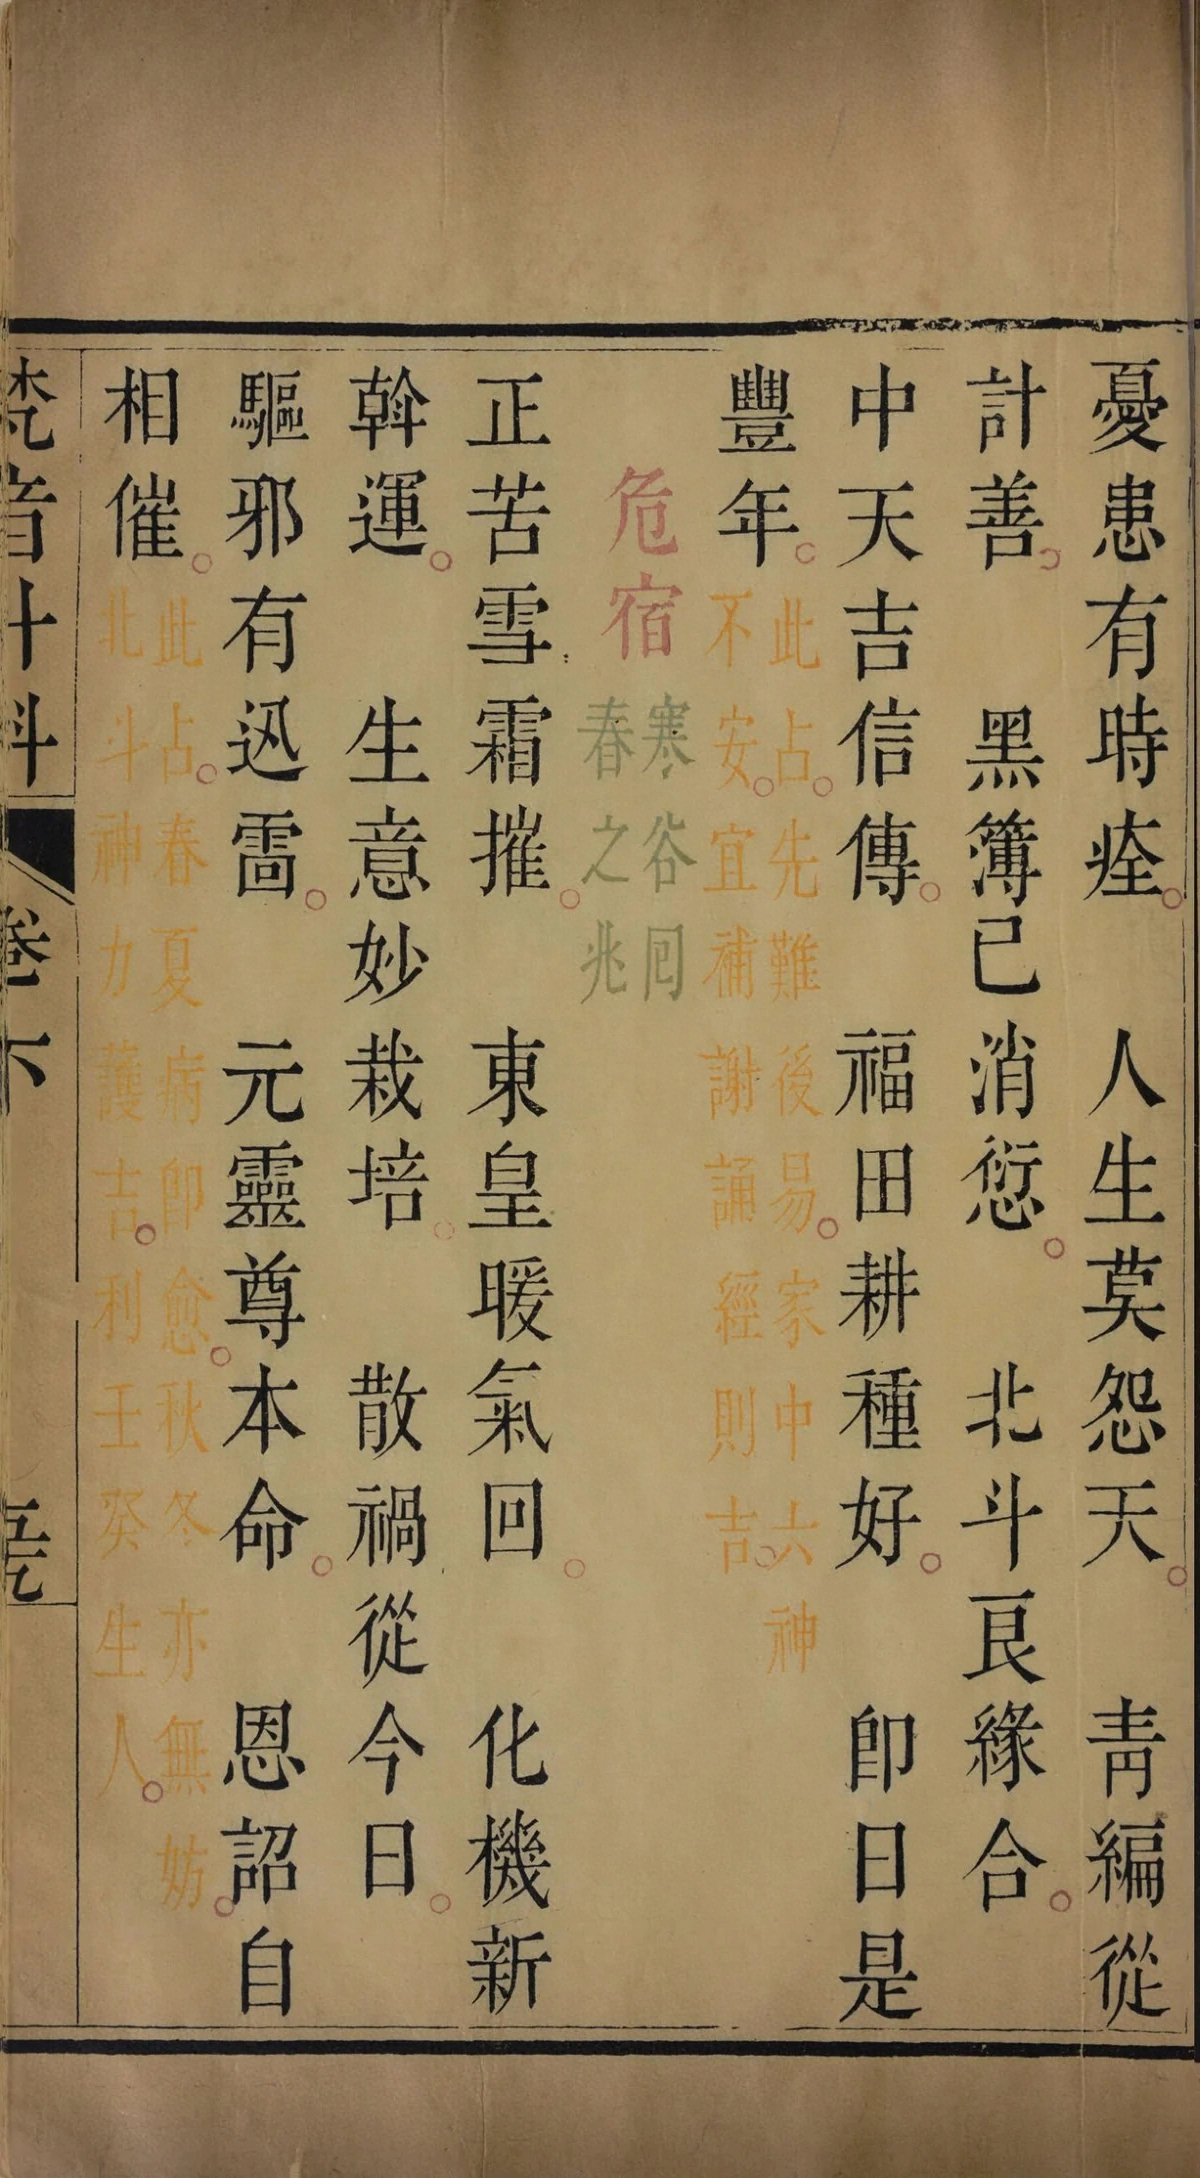 憂患有時痊。人生莫怨天。青編從
計善。黑簿已消愆。北斗艮緣合。
中天吉信傳。福田耕種好。卽日是
豐年。
此占。先難後易。家中六神
不安。宜補謝誦經則吉。
危宿
寒谷囘
春之兆
正苦雪霜摧。東皇暖氣回。化機新
斡運。生意妙栽培。散禍從今日。
驅邪有迅雷。元靈尊本命。恩詔自
相催。
此占。春夏病卽愈。秋冬亦無妨。
北斗神力護吉。利壬癸生人。
梵音斗科
卷下